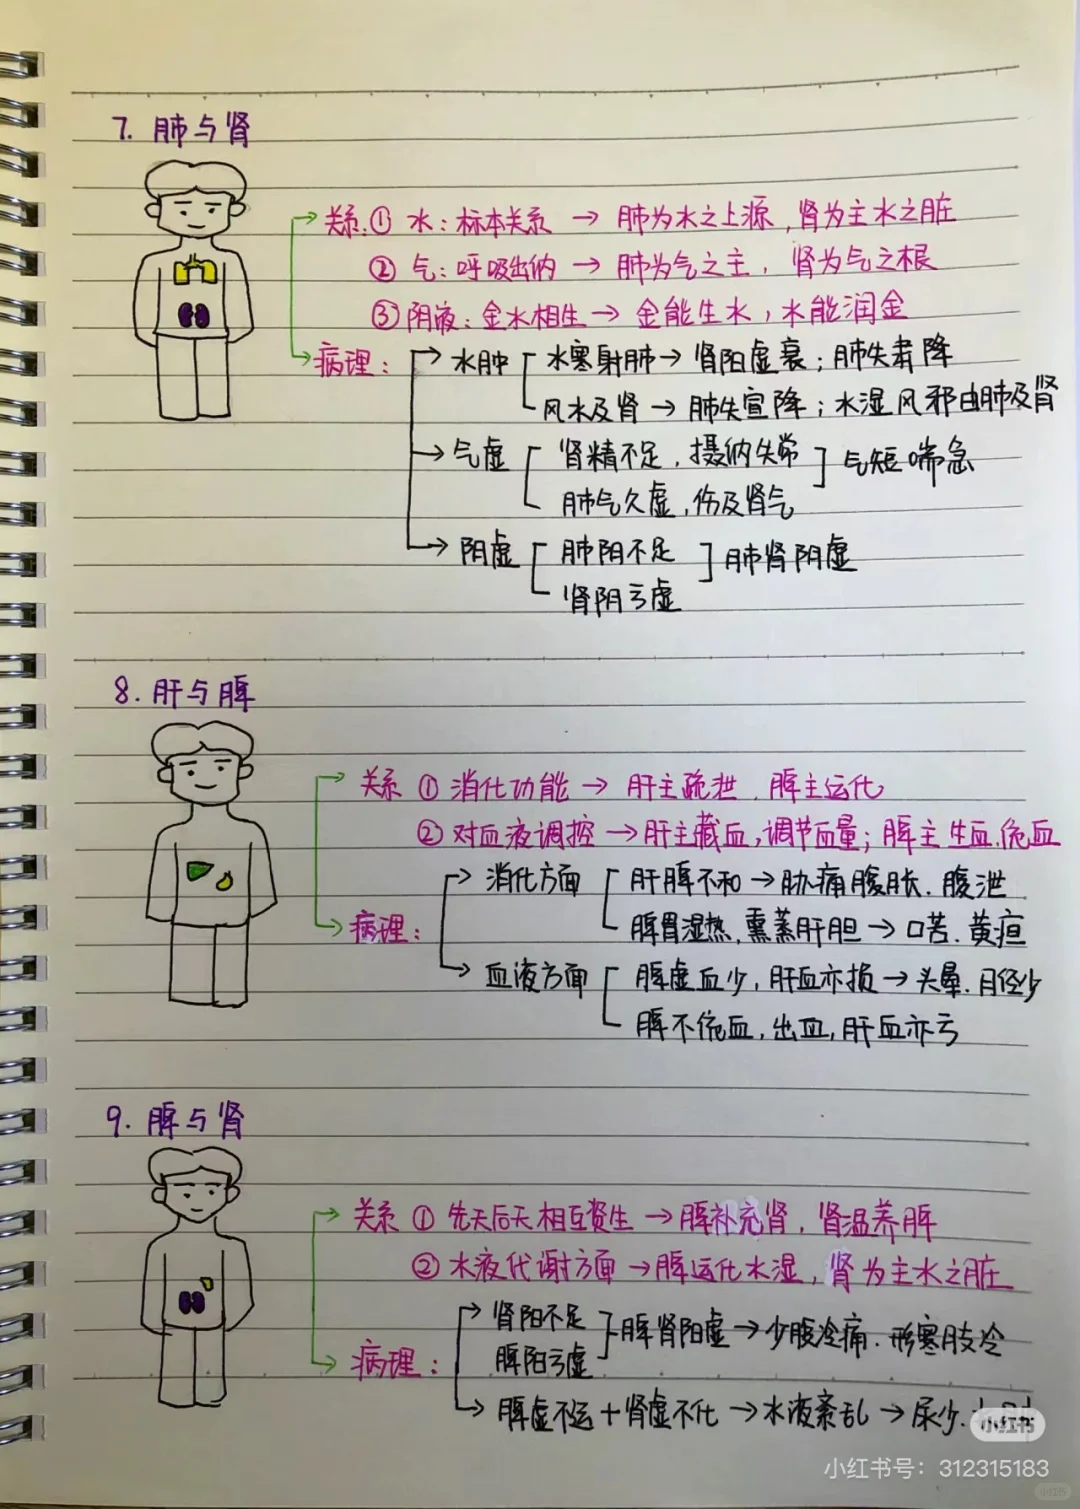 7. 肺与肾
关系:① 水：标本关系 → 肺为水之上源，肾为主水之脏
② 气：呼吸出纳 → 肺为气之主，肾为气之根
③ 阴液：金水相生 → 金能生水，水能润金
病理： → 水肿 水寒射肺 → 肾阳虚衰；肺失肃降
风水及肾 → 肺失宣降；水湿风邪由肺及肾
→ 气虚 肾精不足，摄纳失常 ] 气短喘急
肺气久虚，伤及肾气
→ 阴虚 肺阴不足 ] 肺肾阴虚
肾阴亏虚
8. 肝与脾
关系 ① 消化功能 → 肝主疏泄、脾主运化
② 对血液调控 → 肝主藏血，调节血量；脾主生血、统血
病理： → 消化方面 肝脾不和 → 胁痛腹胀、腹泄
脾胃湿热，熏蒸肝胆 → 口苦、黄疸
→ 血液方面 脾虚血少，肝血亦损 → 头晕、月经少
脾不统血，出血，肝血亦亏
9. 脾与肾
关系 ① 先天后天相互资生 → 脾补充肾，肾温养脾
② 水液代谢方面 → 脾运化水湿，肾为主水之脏
病理： → 肾阳不足 ] 脾肾阳虚 → 少腹冷痛、形寒肢冷
脾阳亏虚
→ 脾虚不运 + 肾虚不化 → 水液紊乱 → 尿少、
小红书
小红书号：312315183